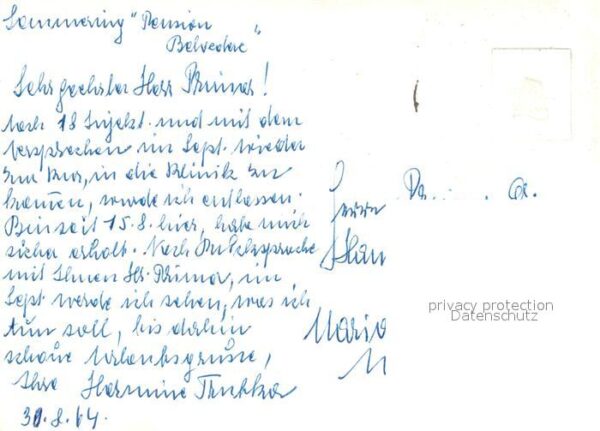 Semmering "Pension
Belvedere"
Sehr geehrter Herr Primar!
Nach 18 Injekt. und mit dem
Versprechen im Sept. wieder
zur Kur, in die Klinik zu
kommen, wurde ich entlassen.
Bin seit 15.8. hier, habe mich
sicher erholt. Nach Rücksprache
mit Ihnen Hr. Primar, im
Sept. werde ich sehen, was ich
tun soll, bis dahin
schöne Urlaubsgrüsse,
Ihre Hermine
30.8.64.
Herrn
Maria
privacy protection
Datenschutz